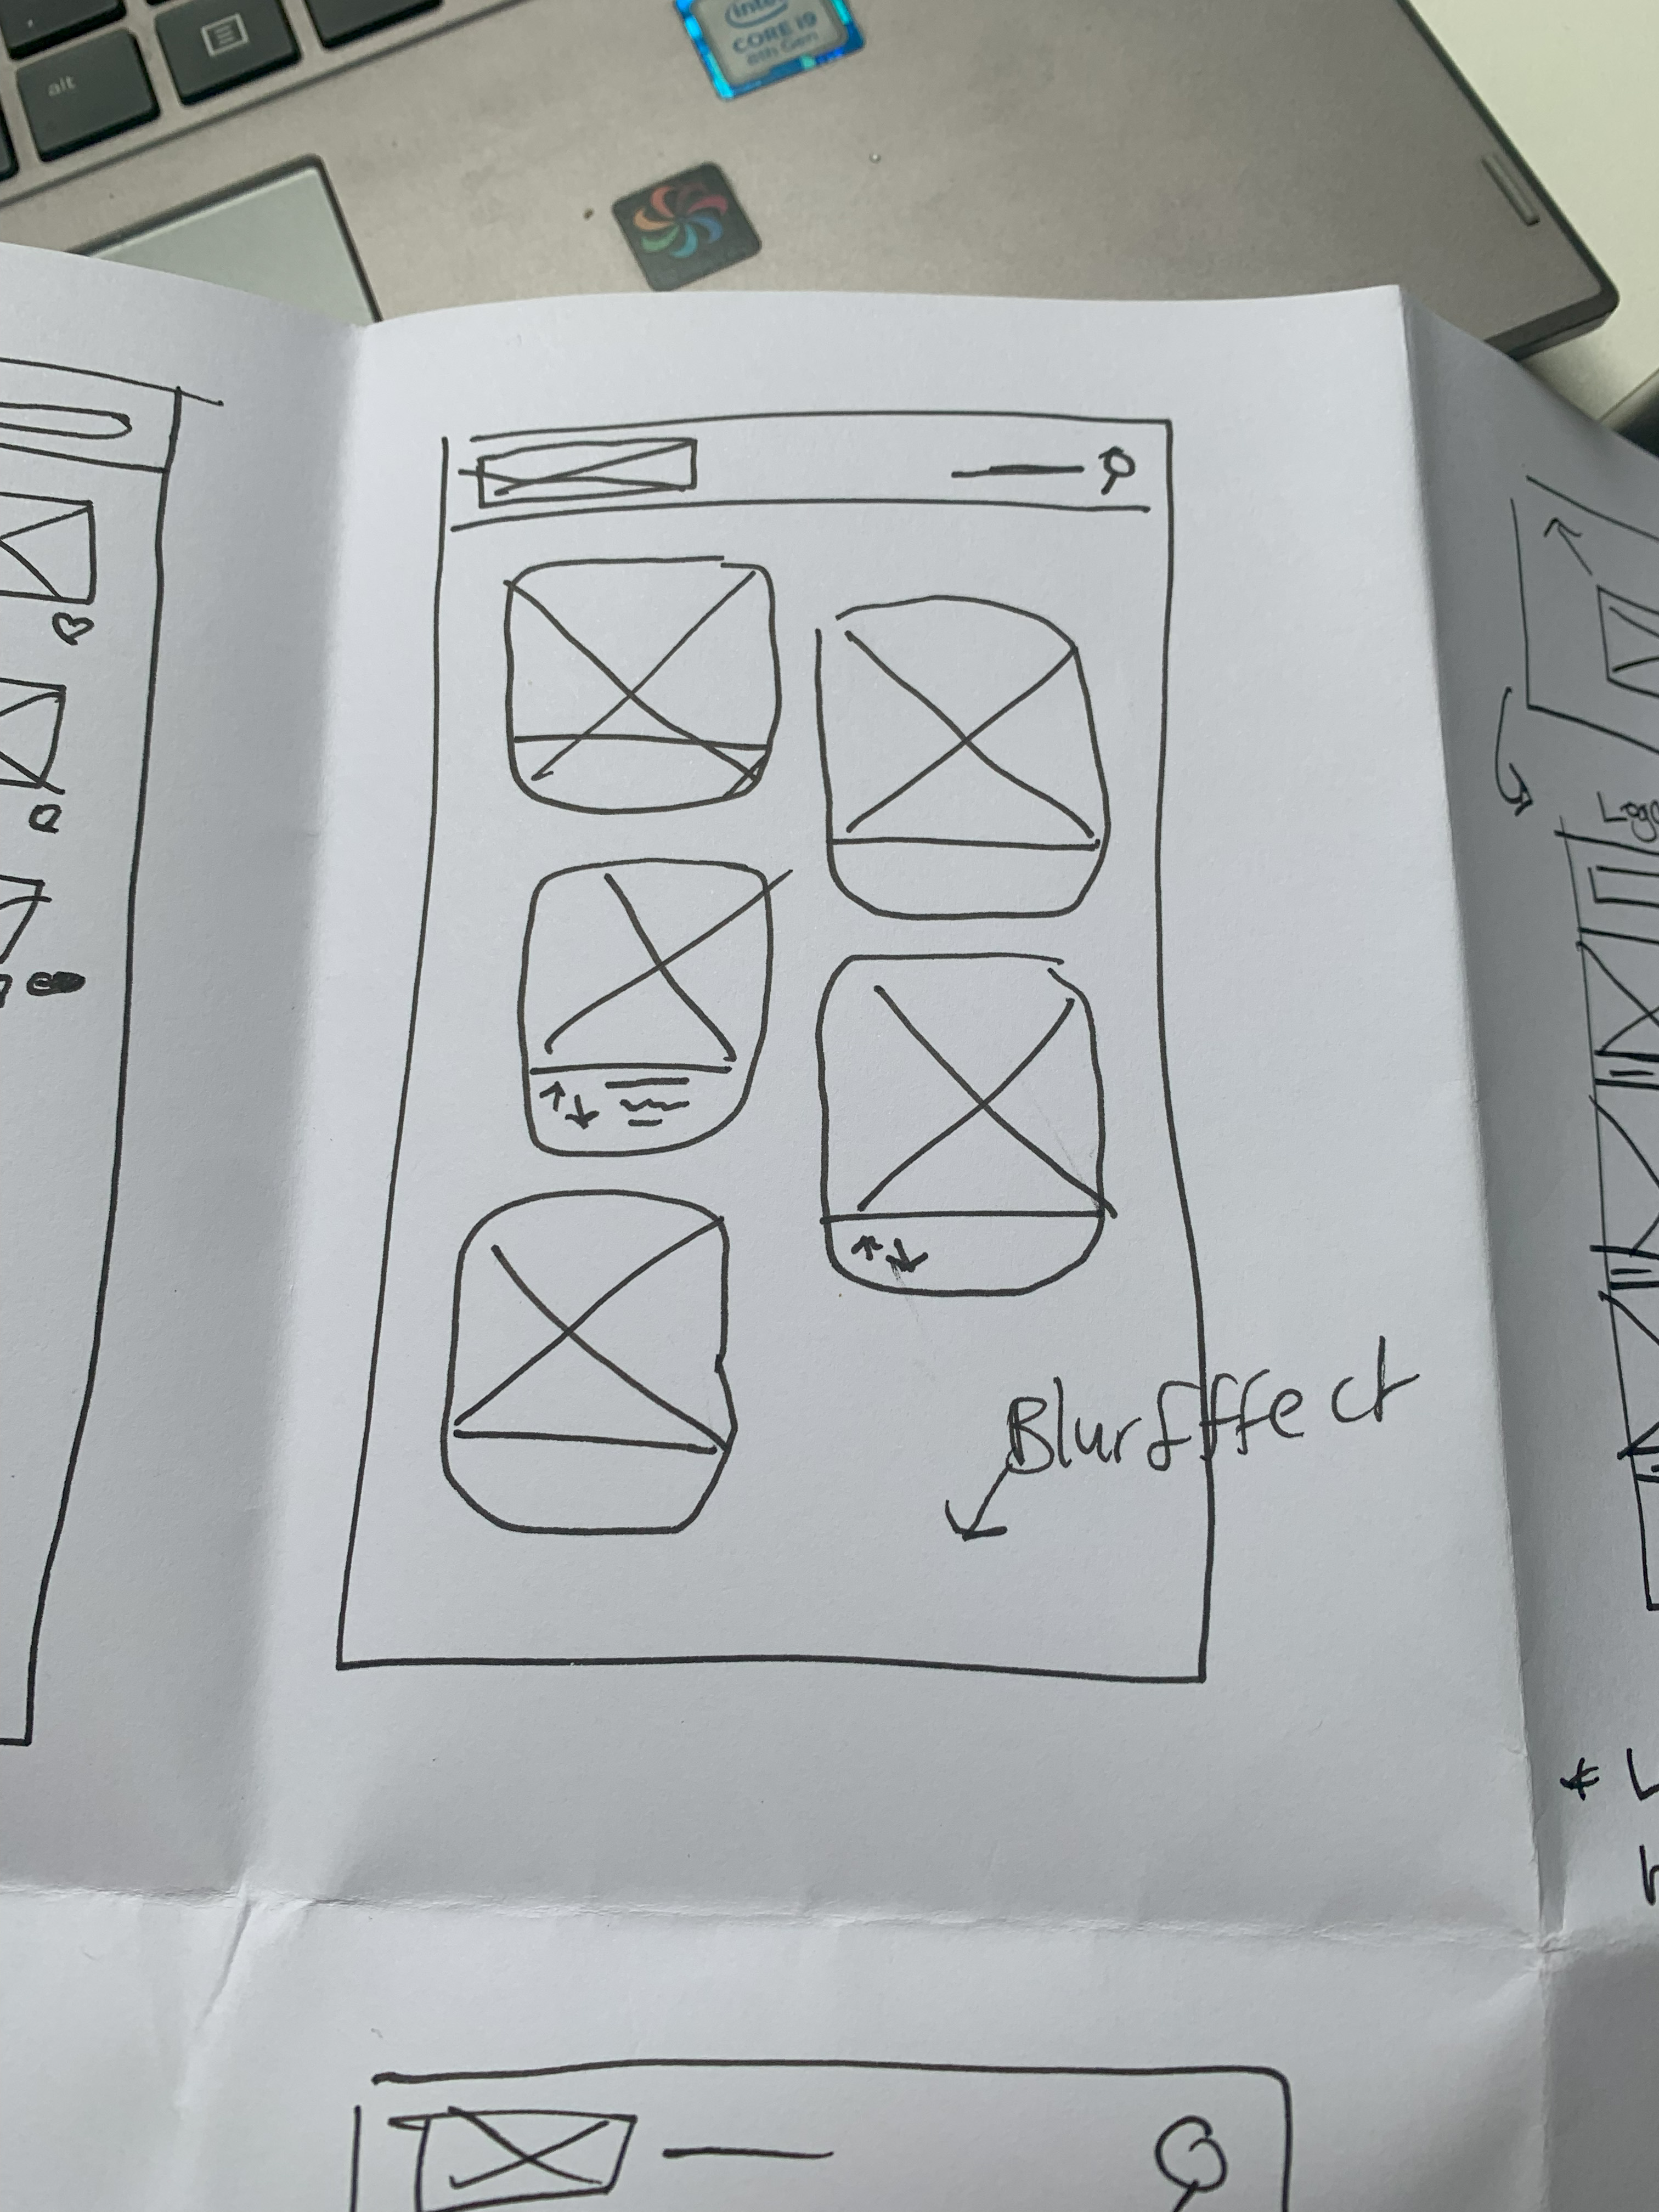 alt
intel
CORE i9
8th Gen
Blur Effect